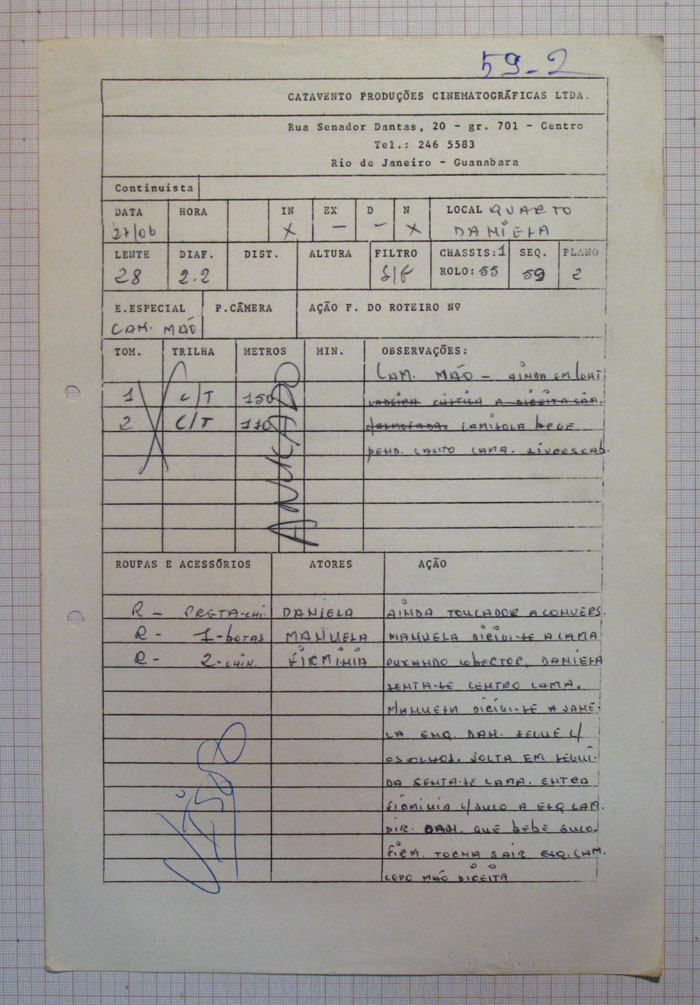 59-2
CATAVENTO PRODUÇÕES CINEMATOGRÁFICAS LTDA.
Rua Senador Dantas, 20 - gr. 701 - Centro
Tel.: 246 5583
Rio de Janeiro - Guanabara
Continuista
DATA HORA IN EX D N LOCAL QUARTO
27/06 X — — X DANIELA
LENTE DIAF. DIST. ALTURA FILTRO CHASSIS:1 SEQ. PLANO
28 2.2 S/F ROLO: 55 59 2
E.ESPECIAL P.CÂMERA AÇÃO F. DO ROTEIRO Nº
CAM. MÃO
TOM. TRILHA METROS MIN. OBSERVAÇÕES:
CAM. MÃO - AINDA EM
1 C/T 150 A DIREITA
2 C/T 110 CAMISOLA BEGE
CAMA.
ANULADO
ROUPAS E ACESSÓRIOS ATORES AÇÃO
R - PRETA-CHI. DANIELA AINDA TOUCADOR A CONVERS.
R - 1-BOTAS MANUELA MANUELA DIRIGI-SE A CAMA
R - 2-CHIN. FIRMINIA PUXANDO COBERTOR. DANIELA
SENTA-SE CENTRO CAMA.
MANUELA DIRIGI-SE A JANE-
LA ESQ. DAM. SEGUE C/
OS OLHOS. VOLTA EM SEGUI-
DA SENTA-SE CAMA. ENTRA
FIRMINIA C/SUCO A ESQ CAM.
DIR. DAN. QUE BEBE SUCO.
FIRM. TORNA SAIR ESQ. CAM.
COPO MÃO DIREITA